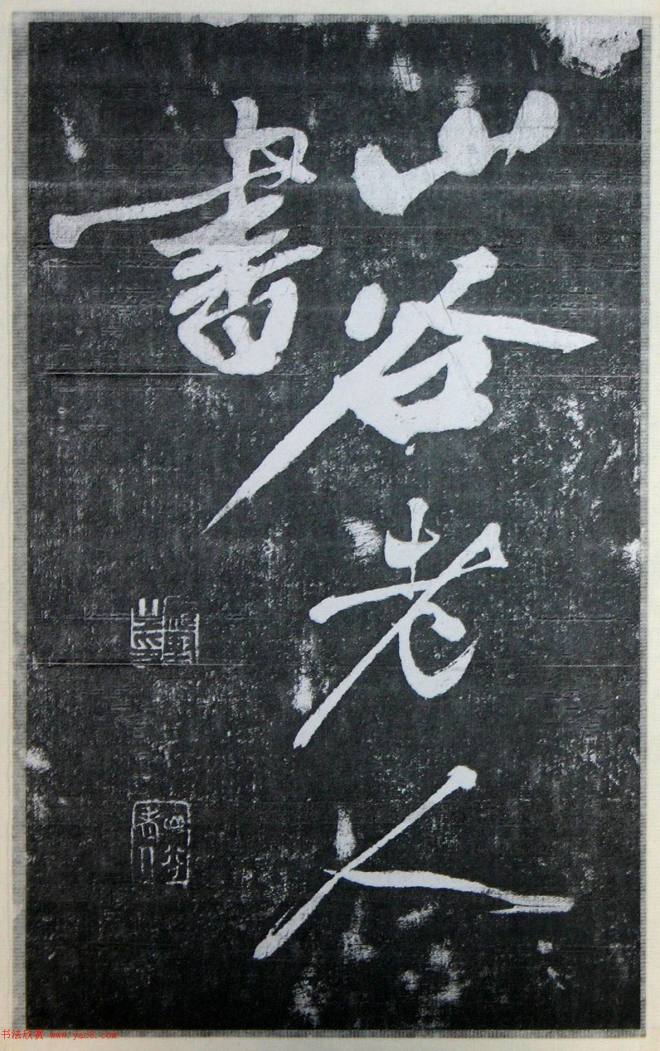 山谷老人
書
山谷老人
书法欣赏 www.yac8.com